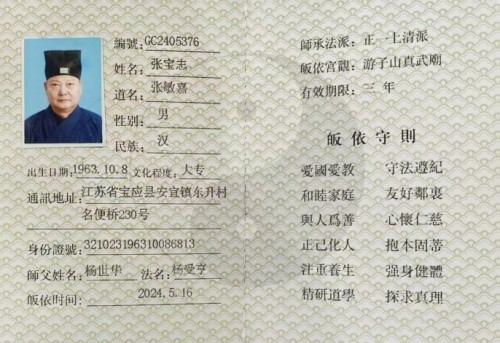 編號:GC2405376
姓名:张宝志
道名:张敏嘉
性别:男
民族:汉
出生日期:1963.10.8 文化程度:大专
通訊地址:江苏省宝应县安宜镇东升村
名便桥230号
身份證號:321023196310086813
師父姓名:杨世华 法名:杨爱亨
皈依时间:2024.5.16
師承法派:正一上清派
皈依宫觀:游子山真武廟
有效期限:三年
皈依守則
愛國愛教 守法遵紀
和睦家庭 友好鄰裏
與人爲善 心懷仁慈
正己化人 抱本固蒂
注重養生 强身健體
精研道學 探求真理